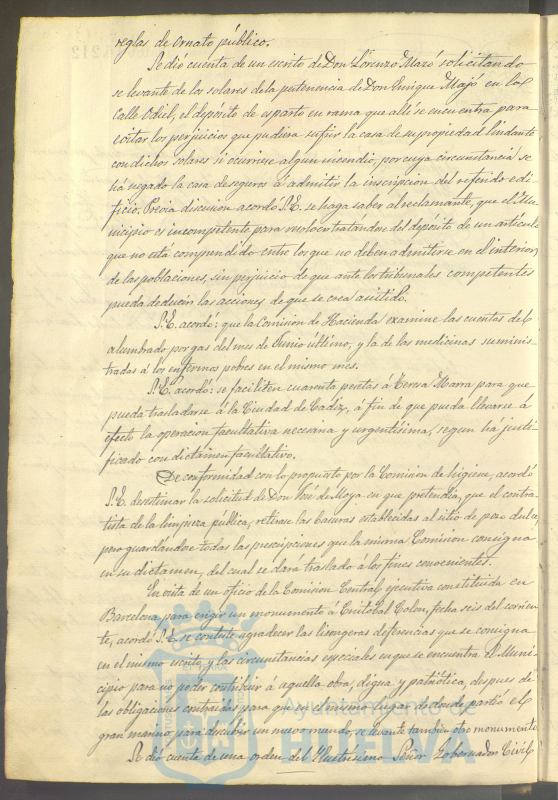 reglas de ornato público.
Se dió cuenta de un escrito de Don Lorenzo Mazó solicitando
se levante de los solares de la pertenencia de Don Enrique Majó en la
Calle Odiel, el depósito de esparto en rama que allí se encuentra para
evitar los perjuicios que pudiera sufrir la casa de su propiedad lindante
con dichos solares si ocurriese algun incendio, por cuya circunstancia se
há negado la casa de seguros á admitir la inscripcion del referido edi-
ficio. Previa discusion acordó S.E. se haga saber al reclamante, que el Mu-
nicipio es incompetente para resolver tratandose del depósito de un artículo
que no está comprendido entre los que no deben admitirse en el interior
de las poblaciones, sin perjuicio de que ante los tribunales competentes
pueda deducir las acciones de que se crea asistido.
S.E. acordó: que la Comision de Hacienda examine las cuentas del
alumbrado por gas del mes de Junio último, y la de las medicinas suminis-
tradas á los enfermos pobres en el mismo mes.
S.E. acordó: se faciliten cuarenta pesetas á Teresa Marra para que
pueda trasladarse á la Ciudad de Cádiz, á fin de que pueda llevarse á
efecto la operacion facultativa necesaria y urgentísima, segun há justi-
ficado con dictamen facultativo.
De conformidad con lo propuesto por la Comision de higiene, acordó
S.E. desestimar la solicitud de Don José de Moya en que pretendia, que el contra-
tista de la limpieza publica, retirase las basuras establecidas al sitio de pozo dulce,
pero guardándose todas las prescripciones que la misma Comision consigna
en su dictamen, del cual se dará traslado á los fines convenientes.
En vista de un oficio de la Comision Central ejecutiva constituida en
Barcelona para erigir un monumento á Cristobal Colon, fecha seis del corrien-
te, acordó S.E. se conteste agradecer las lisongeras deferencias que se consigna
en el mismo escrito, y las circunstancias especiales en que se encuentra el Muni-
cipio para no poder contribuir á aquella obra, digna y patriótica, despues de
las obligaciones contraidas para que en el mismo lugar de donde partió el
gran marino, para descubrir un nuevo mundo, se levante tambien otro monumento.
Se dió cuenta de una orden del Ilustrísimo Señor Gobernador Civil
Ayuntamiento de
HUELVA